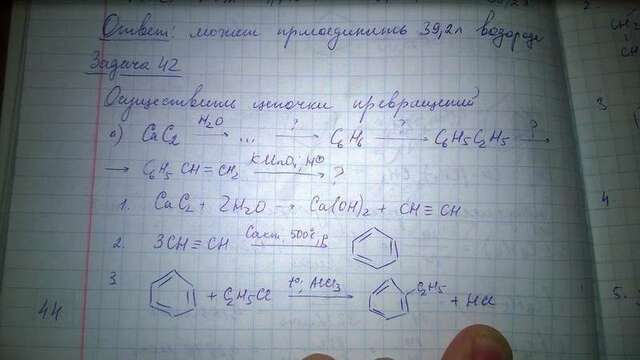 Ответ: может присоединить 39,2 л водорода
Задача 42
Осуществить цепочки превращений
а) CaC2 H2O → ... ? → C6H6 ? → C6H5C2H5 ? →
→ C6H5CH=CH2 KMnO4, H⊕ → ?
1. CaC2 + 2H2O → Ca(OH)2 + CH≡CH
2. 3CH≡CH Cакт, 500°C, p
3 + C2H5Cl t°, AlCl3 → C2H5 + HCl
44
3
4
5.